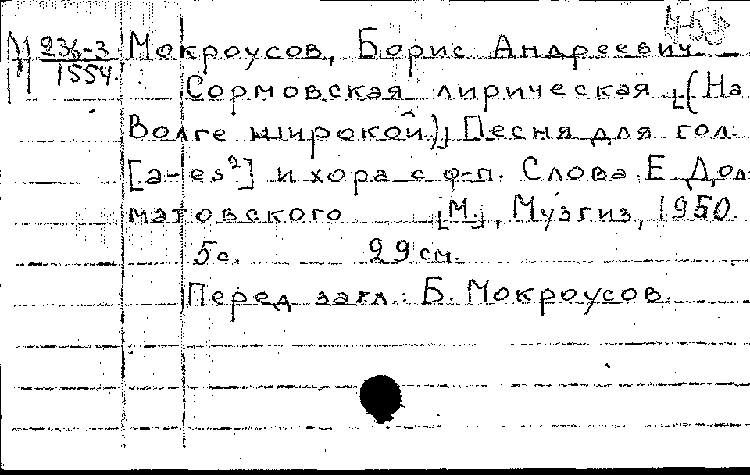 М 236-3 Мокроусов, Борис Андреевич.
1554 Сормовская лирическая [(На
Волге широкой)]. Песня для гол.
[a-es²] и хора с ф-п. Слова Е. Дол-
матовского [М.], Музгиз, 1950.
5с. 29 см.
Перед загл.: Б. Мокроусов.